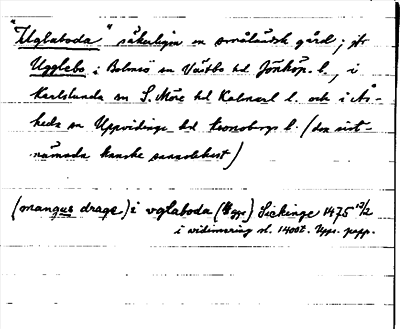 "Uglaboda" säkerligen en småländsk gård; jfr
Ugglebo i Bolmsö sn Västbo hd Jönköp. l., i
Karlslunda sn S. Möre hd Kalmar l. och i Ås-
heda sn Uppvidinge hd Kronobergs l. (den sist-
nämnda kanske sannolikast)
(mangus drage) i vglaboda ( ) Sickinge 1475 13/2
i vidimering sl. 1400t. Upps. papp.